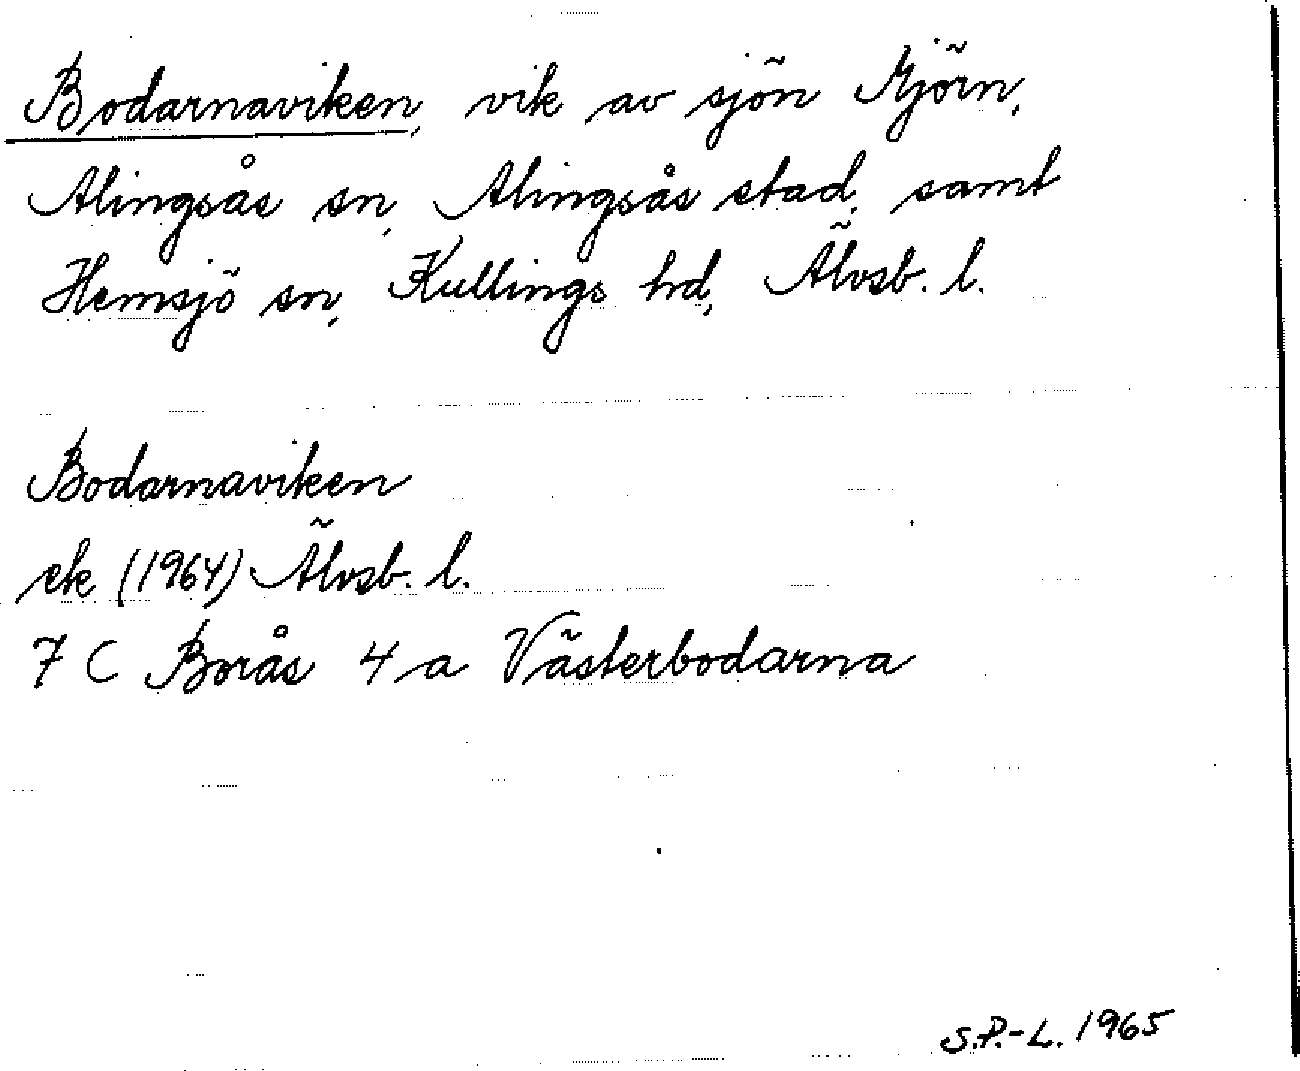 Bodarnaviken, vik av sjön Mjörn,
Alingsås sn, Alingsås stad, samt
Hemsjö sn, Kullings hd, Älvsb. l.
Bodarnaviken
ek (1964) Älvsb. l.
7 C Borås 4 a Västerbodarna
S.P.-L. 1965